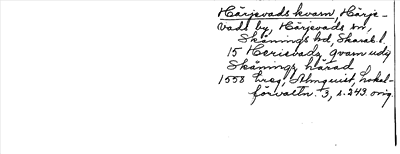 Härjevads kvarn, Härje-
vads by, Härjevads sn,
Skånings hd, Skarab. l.
15 Herievadz qvarn udj
Skånings härad
1558 Almquist, Lokal-
förvaltn. 3, s. 243. orig.